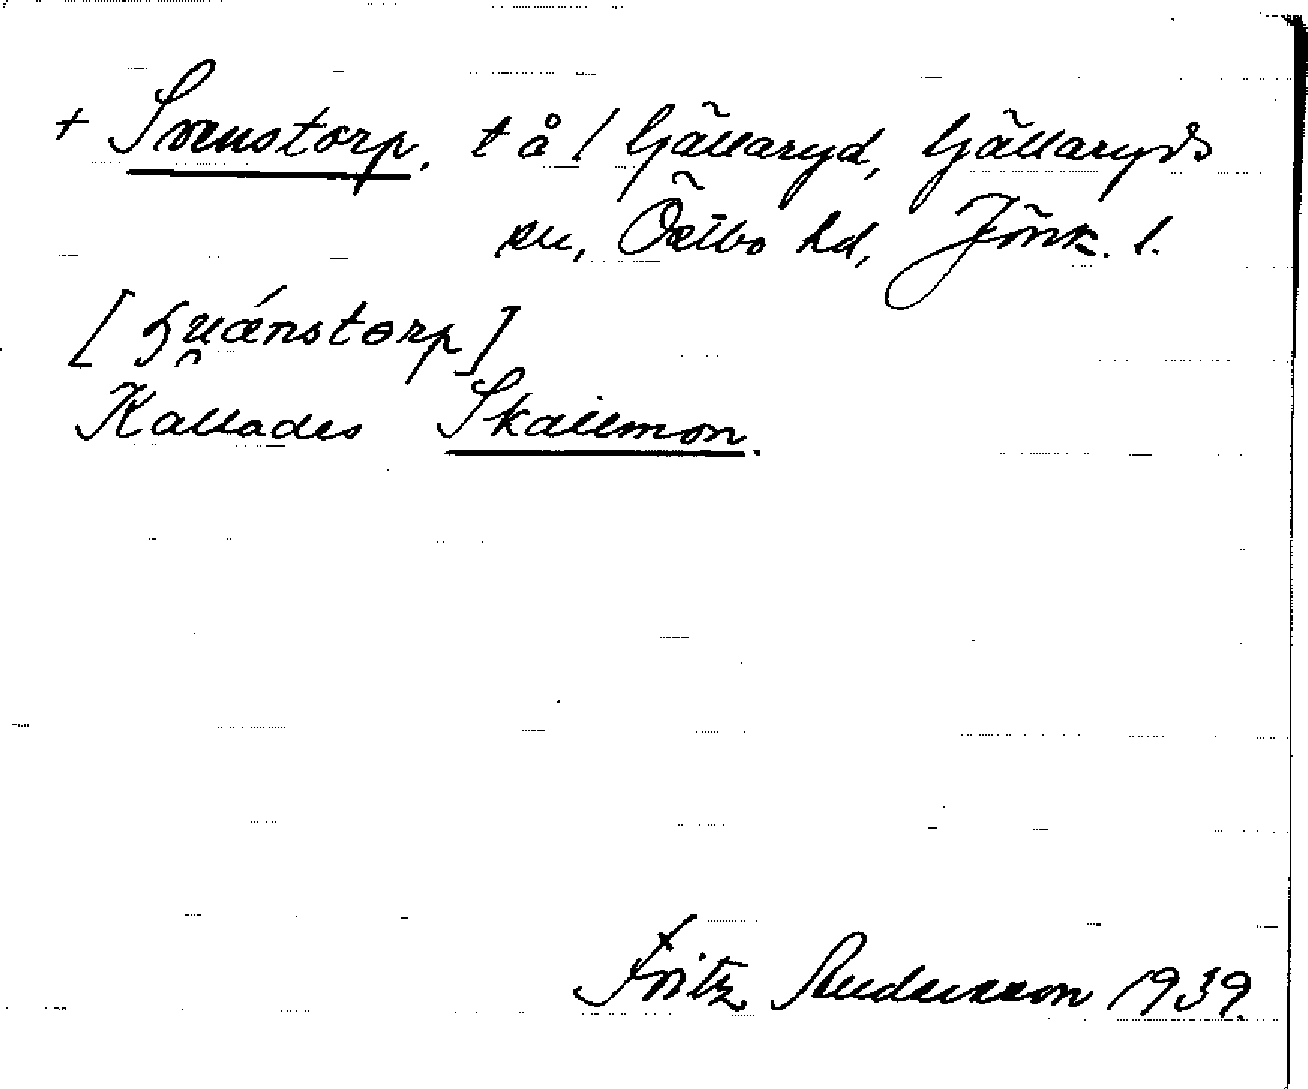 + Svenstorp. t å / Gällaryd, Gällaryds
sn, Östbo hd, Jönk. l.
[su̯ǽnstorp]
Kallades Skallmon.
Fritz Andersson 1939.